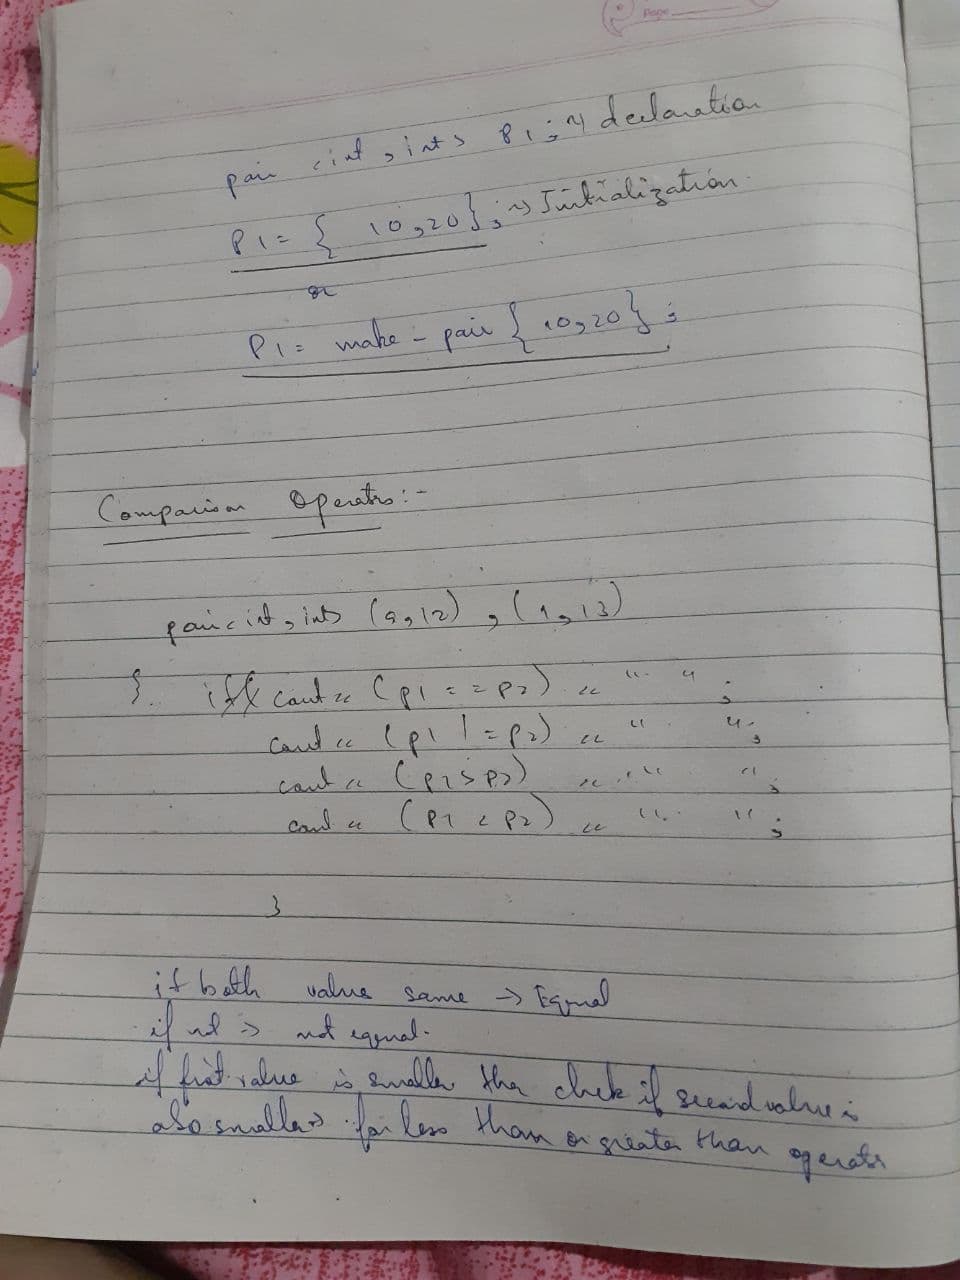 Page
pair <int, int> P1; → declaration
P1 = { 10, 20 }; → Initialization
or
P1 = make - pair { 10, 20 } ;
Comparison Operators :-
pair<int, int> (9, 12) , (1, 13)
{ cout << (p1 == p2) << " " ;
cout << (p1 != p2) << " " ;
cout << (p1 > p2) << " " ;
cout << (P1 < P2) << " " ;
}
if both value same → Equal
if not → not equal.
if first value is smaller the chek if second value is
also smaller for less than or greater than operator